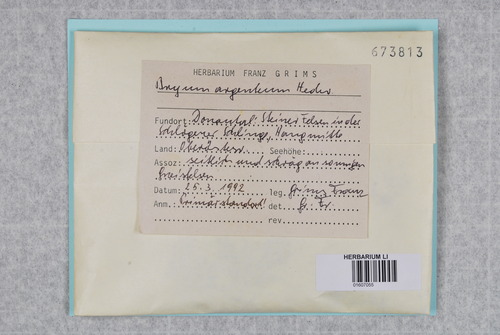 673813
HERBARIUM FRANZ GRIMS
Bryum argenteum Hedw
Fundort: Donautal: Steiner Felsen in der
Schlögener Schlinge, Hangmitte
Land: Oberösterr. Seehöhe:
Assoz: seitlich und schräg an sonnigen
Gneisfelsen
Datum: 25.3.1992 leg. Grims Franz
Anm. Primärstandort! det. Gr. Fr.
rev.
HERBARIUM LI